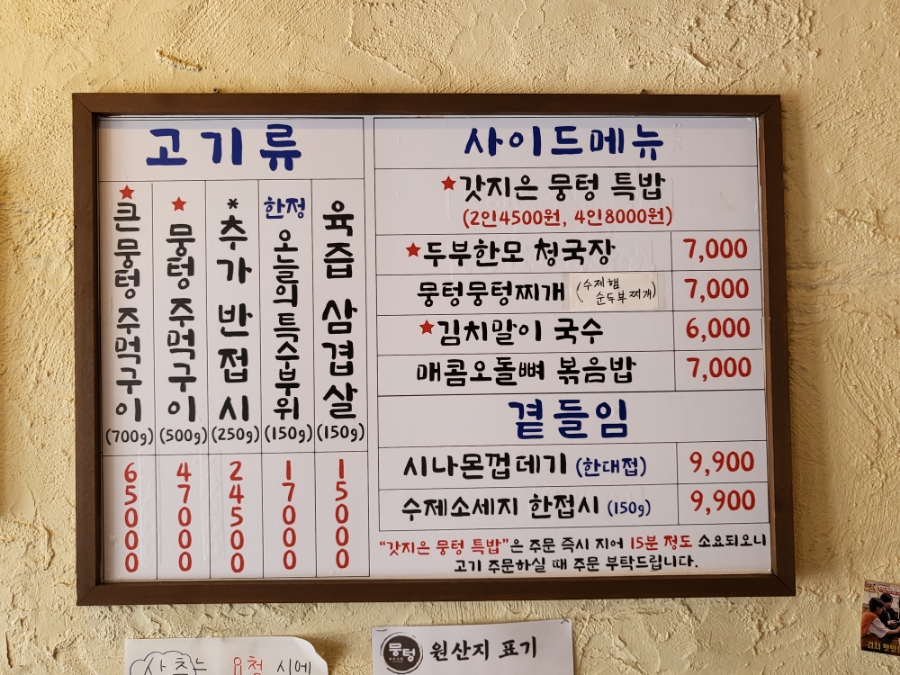 고기류
★큰 뭉텅 주먹구이 (700g) 65000
★뭉텅 주먹구이 (500g) 47000
*추가 반접시 (250g) 24500
한정 오늘의특수부위 (150g) 17000
육즙 삼겹살 (150g) 15000
사이드메뉴
★갓지은 뭉텅 특밥
(2인4500원, 4인8000원)
★두부한모 청국장 7,000
뭉텅뭉텅찌개 (수제햄 순두부찌개) 7,000
★김치말이 국수 6,000
매콤오돌뼈 볶음밥 7,000
곁들임
시나몬껍데기 (한대접) 9,900
수제소세지 한접시 (150g) 9,900
"갓지은 뭉텅 특밥"은 주문 즉시 지어 15분 정도 소요되오니
고기 주문하실 때 주문 부탁드립니다.
상추는 요청 시에
뭉텅 원산지 표기